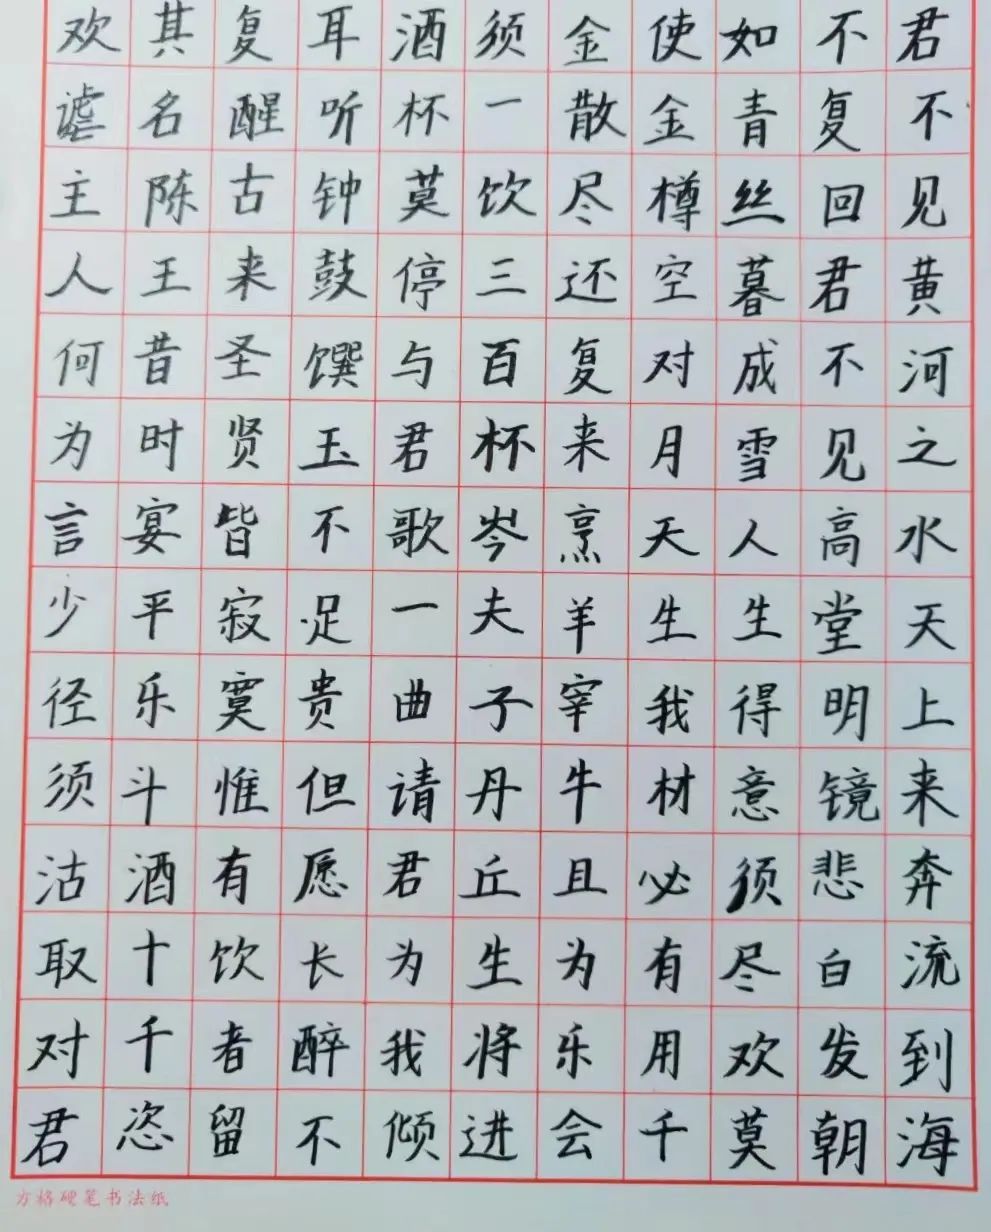 君不见黄河之水天上来奔流到海
不复回君不见高堂明镜悲白发朝
如青丝暮成雪人生得意须尽欢莫
使金樽空对月天生我材必有用千
金散尽还复来烹羊宰牛且为乐会
须一饮三百杯岑夫子丹丘生将进
酒杯莫停与君歌一曲请君为我倾
耳听钟鼓馔玉不足贵但愿长醉不
复醒古来圣贤皆寂寞惟有饮者留
其名陈王昔时宴平乐斗酒十千恣
欢谑主人何为言少径须沽取对君
方格硬笔书法纸